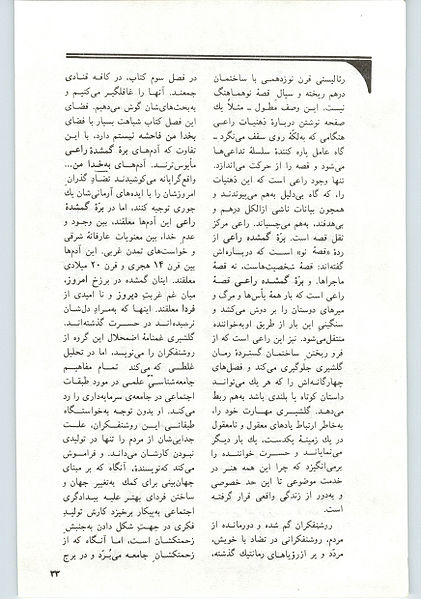 رئالیستی قرن نوزدهمی با ساختمان
درهم ریخته و سیال قصهٔ نو هماهنگ
نیست. این وصف مطول ـ مثلاً یك
صفحه نوشتن دربارهٔ ذهنیات راعی
هنگامی که به‌لکهٔ روی سقف می‌نگرد ـ
گاه عامل پاره کنندهٔ سلسلهٔ تداعی‌ها
می‌شود و قصه را از حرکت می‌اندازد.
تنها وجود راعی است که این ذهنیات
را، که گاه بی‌دلیل به‌هم می‌پیوندند و
همچون بیانات ناشی ازالکل درهم و
بی‌هدفند، به‌هم می‌چسباند. راعی مرکز
نقل قصه است. برّهٔ گمشده راعی از
ردهٔ «قصهٔ نو» است که درباره‌اش
گفته‌اند: قصهٔ شخصیت‌هاست، نه قصهٔ
ماجراها، و برّهٔ گمشده راعی قصهٔ
راعی است که بار همهٔ یأس‌ها و مرگ و
میرهای دوستان را بر دوش می‌کشد و
سنگینی این بار از طریق او به‌خواننده
منتقل می‌شود. نیز این راعی است که از
فرو ریختن ساختمان گستردهٔ رمان
گلشیری جلوگیری می‌کند و فصل‌های
چهارگانه‌اش را که هر یك می‌توانـد
داستان کوتاه یا بلندی باشد به‌هم ربط
می‌دهـد. گلشیـری مهـارت خود را،
به‌خاطر ارتباط یادهای معقول و نامعقول
در یك زمینهٔ یکدست، یك بار دیگر
می‌نمایانـد و حسـرت خواننـده را
برمی‌انگیزد که چرا این همه هنر در
خدمت موضوعی تا این حد خصوصی
و به‌دور از زندگی واقعی قرار گرفته
است.
روشنفکران گم شده و دورمانده از
مردم. روشنفکرانی در تضاد با خویش،
مردّد و پر ازرؤیاهای رمانتیك گذشته،
در فصل سوم کتاب، در کافه قنادی
جمعند. آنها را غافلگیر می‌کنیم و
به‌بحث‌های‌شان گوش می‌دهیم. فضای
این فصل کتاب شباهت بسیار با فضای
بخدا من فاحشه نیستم دارد، با این
تفاوت که آدم‌های برهٔ گمشدهٔ راعی
مأیوس‌ترند. آدم‌های به‌خدا من...
واقع‌گرایانه می‌کوشیدند تضاد گذران
امروزشان را با ایده‌های آرمانی‌شان یك
جوری توجیه کنند، اما در برّهٔ گمشدهٔ
راعی این آدم‌ها معلقند، بین وجود و
عدم خدا، بین معنویات عارفانهٔ شرقی
و خواست‌های تمدن غربی. این آدم‌ها
بین قرن ۱۴ هجری و قرن ۲۰ میلادی
معلقند. اینان گمشده در برزخ امروز،
میان غم غربتِ دیروز و نا امیدی از
فردا معلقند. اینها که به‌مراد دل‌شان
نرسیده‌اند در حسـرت گذشته‌انـد.
گلشیری غمنامهٔ اضمحلال این گروه از
روشنفکران را می‌نویسد، اما در تحلیل
غلطـی که می‌کند تمام مفاهیم
جامعه‌شناسی علمی در مورد طبقات
اجتماعی در جامعه‌ی سرمایه‌داری را رد
می‌کند. او بدون توجه به‌خواستگاه
طبقاتـی ایـن روشنفکـران، علـت
جدایی‌شان از مردم را تنها در تولیدی
نبودن کارشان می‌داند. و فراموش
می‌کند که‌نویسندهٔ، آنگاه که بر مبنای
جهان‌بینی برای کمك به‌تغییر جهان و
ساختن فردای بهتر علیه بیدادگری
اجتماعی به‌پیکار برخیزد کارش تولید
فکری در جهتِ شکل دادن به‌جنبش
زحمتکشان است، اما آنگاه که از
زحمتکشانِ جامعه می‌بُرّد و در برج
۳۳